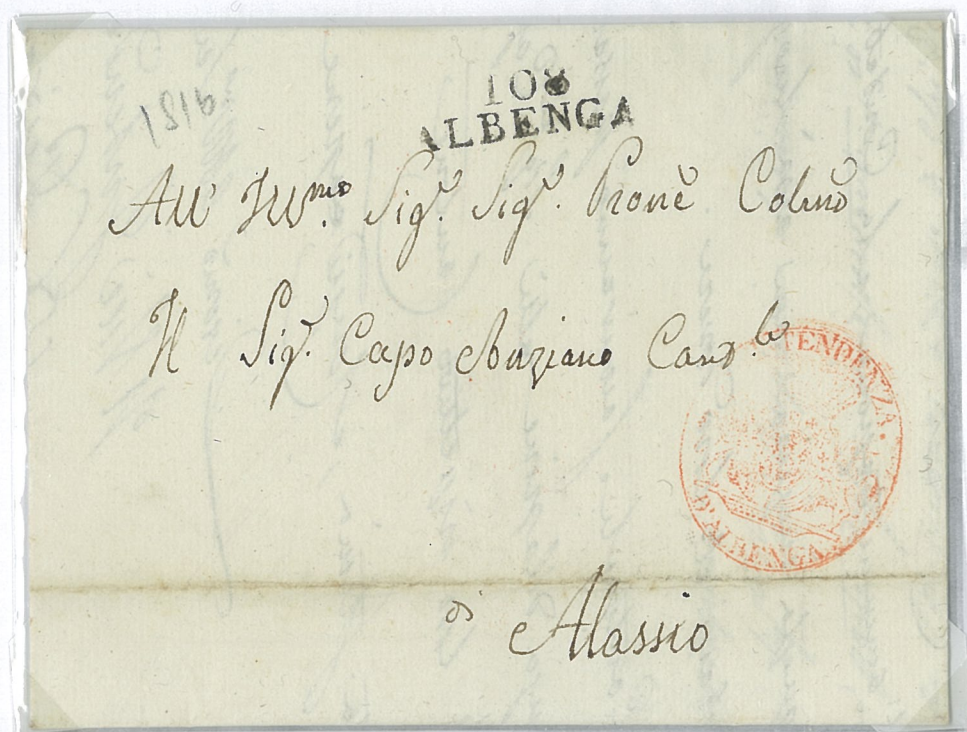 1816
108
ALBENGA
All' Ill.mo Sig.r Sig.r Prone Col.mo
Il Sig.r Capo Anziano Cand.la
TENDENZA.
D'ALBENGA
di Alassio